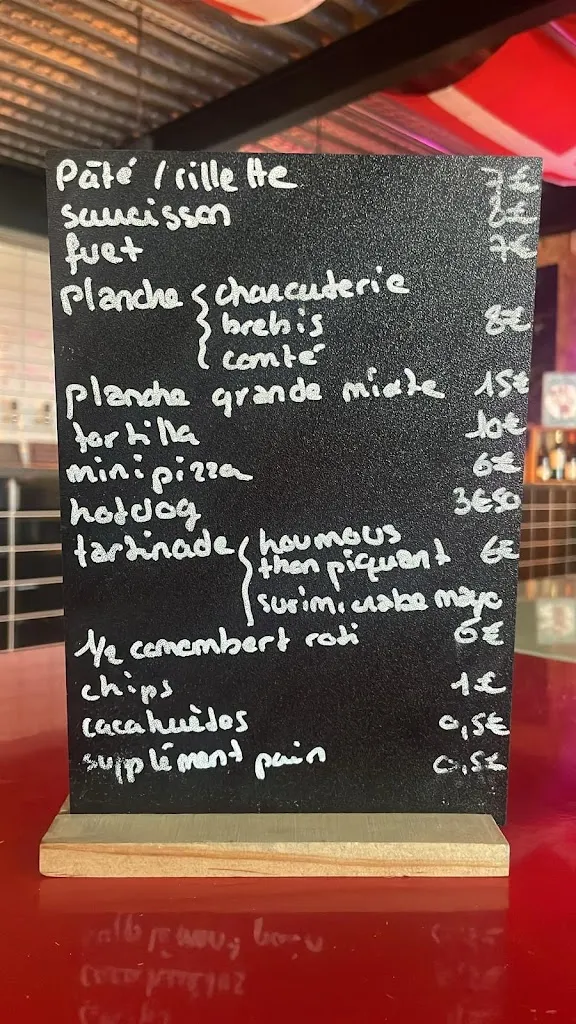 Pâté / rillette 7€
saucisson 8€
fuet 7€
planche { charcuterie
brebis 8€
comté
planche grande mixte 15€
tortilla 10€
minipizza 6€
hotdog 3€50
tartinade { houmous 6€
thon piquant
surimi crabe mayo
1/2 camembert roti 6€
chips 1€
cacahuètos 0,5€
supplément pain 0,5€